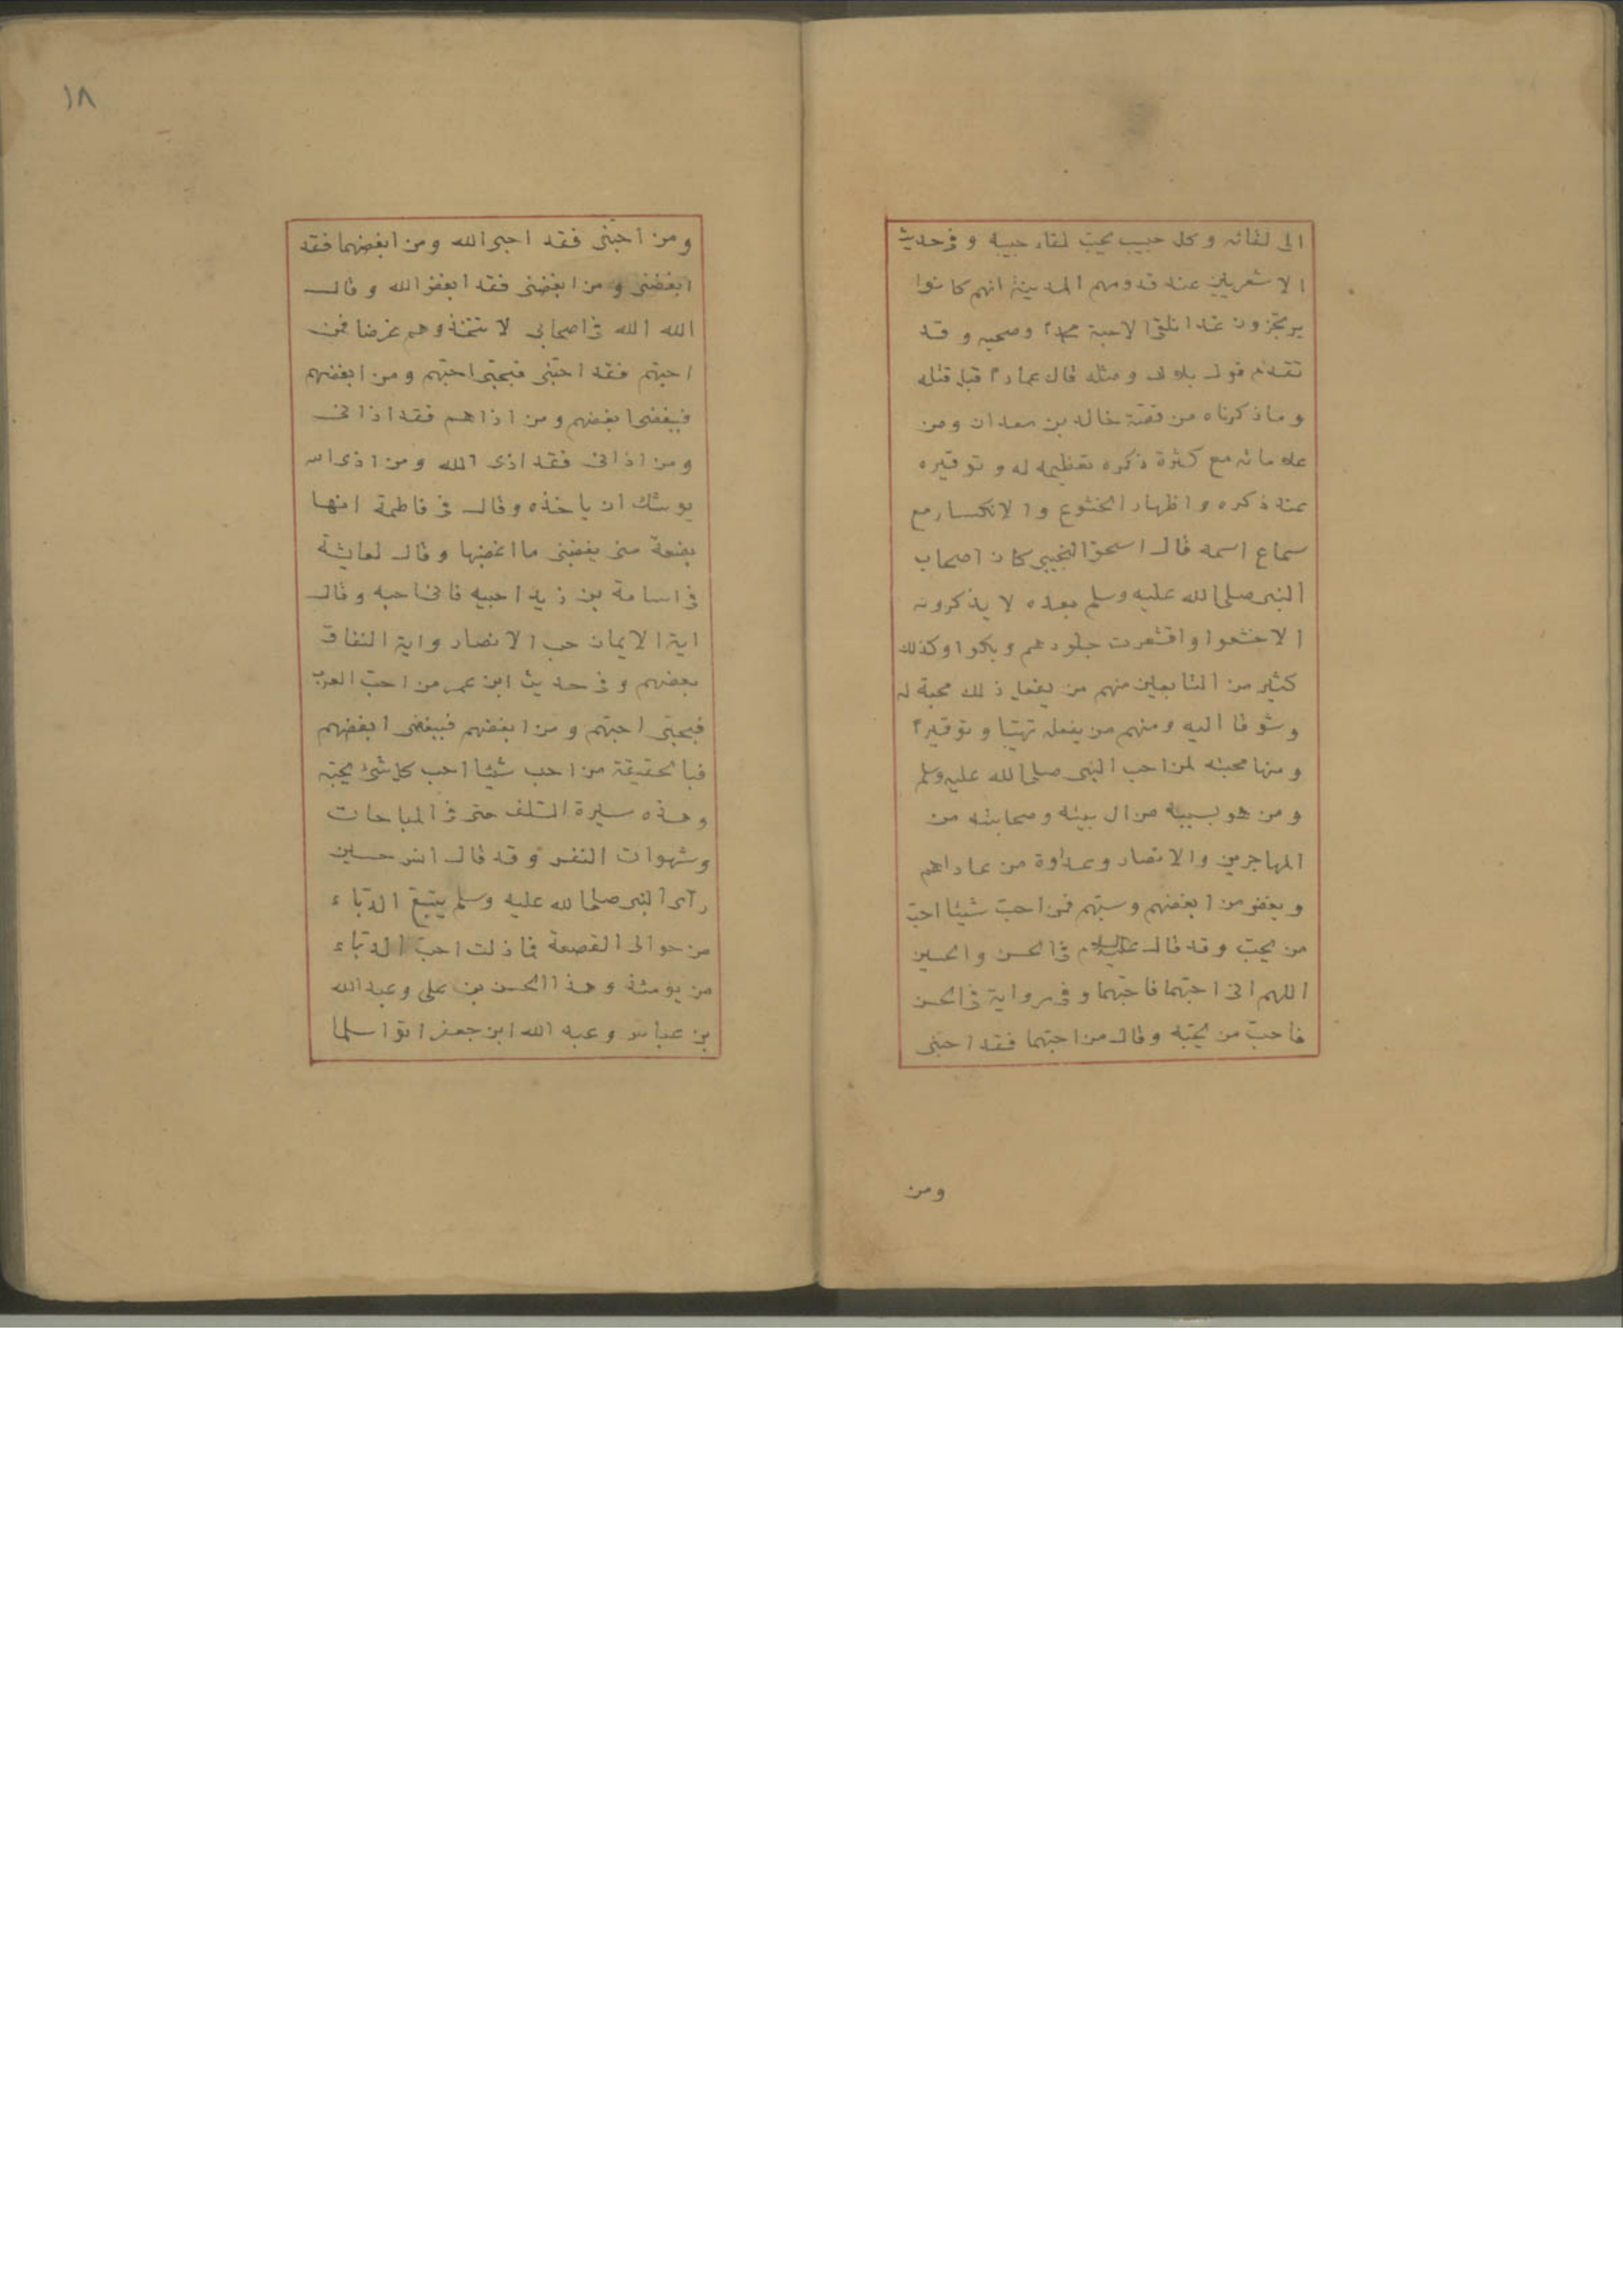 الى لقائه وكل حبيب يحبّ لقاء حبيبه وفى حديث
الاشعريين عند قدومهم المدينة انهم كانوا
يرتجزون غدا نلقى الاحبة محمدا وصحبه وقد
تقدم قول بلال ومثله قال عمارا قبل قتله
وما ذكرناه من قصّة خالد بن معدان ومن
علاماته مع كثرة ذكره تعظيمه له وتوقيره
عند ذكره واظهار الخشوع والانكسار مع
سماع اسمه قال اسحق التجيبى كان اصحاب
النبى صلى الله عليه وسلم بعده لا يذكرونه
الا خشعوا واقشعرت جلودهم وبكوا وكذلك
كثير من التابعين منهم من يفعل ذلك محبة له
وشوقا اليه ومنهم من يفعله تهيّبا وتوقيرا
ومنها محبته لمن احب النبى صلى الله عليه وسلم
ومن هو بسببه من ال بيته وصحابته من
المهاجرين والانصار وعداوة من عاداهم
وبغض من ابغضهم وسبّهم فمن احبّ شيئا احبّ
من يحبّ وقد قال عليه السلام فى الحسن والحسين
اللهم انى احبّهما فاحبّهما وفى رواية فى الحسن
فاحبّ من يحبّه وقال من احبّهما فقد احبّنى
ومن
١٨
ومن احبّنى فقد احب الله ومن ابغضهما فقد
ابغضنى ومن ابغضنى فقد ابغض الله وقال
الله الله فى اصحابى لا تتخذوهم غرضا فمن
احبّهم فقد احبّنى فبحبّى احبّهم ومن ابغضهم
فببغضى ابغضهم ومن اذاهم فقد اذانى
ومن اذانى فقد اذى الله ومن اذى الله
يوشك ان ياخذه وقال فى فاطمة انها
بضعة منى يغضبنى ما اغضبها وقال لعايشة
فى اسامة بن زيد احبيه فانى احبه وقال
اية الايمان حب الانصار واية النفاق
بغضهم وفى حديث ابن عمر من احبّ العرب
فبحبّى احبّهم ومن ابغضهم فببغضى ابغضهم
فبالحقيقة من احب شيئا احب كل شئ يحبّه
وهذه سيرة السّلف حتى فى المباحات
وشهوات النفس وقد قال انس حين
رآى النبى صلى الله عليه وسلم يتبع الدّبّاء
من حوالى القصعة فما زلت احبّ الدّبّاء
من يومئذ وهذا الحسن بن على وعبد الله
بن عباس وعبد الله ابن جعفر اتوا سلما